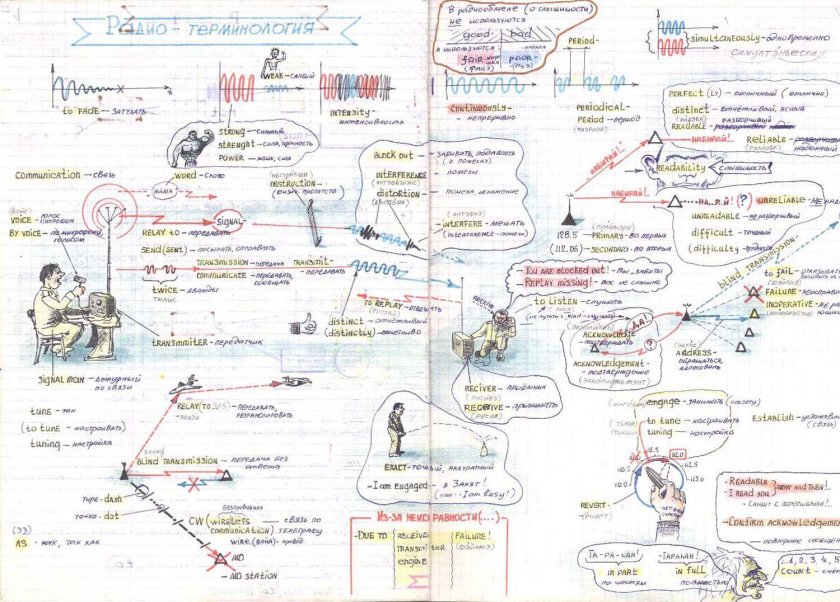 Радио - терминология
to FADE - ЗАТУХАТЬ
WEAK - СЛАБЫЙ
INTENSITY -
ИНТЕНСИВНОСТЬ
STRONG - СИЛЬНЫЙ
strenght - СИЛА, ПРОЧНОСТЬ
POWER - МОЩЬ, СИЛА
communication - СВЯЗЬ
WORD - СЛОВО
МАМА
OBSTRUCTION -
VOICE - ГОЛОС
BY VOICE - ПО МИКРОФОНУ,
ГОЛОСОМ
RELAY to - ПЕРЕДАВАТЬ
SIGNAL
SEND (SENT) - ПОСЫЛАТЬ, ОТПРАВЛЯТЬ
TRANSMISSION - ПЕРЕДАЧА
TRANSMIT -
ПЕРЕДАВАТЬ
COMMUNICATE - ПЕРЕДАВАТЬ,
СООБЩАТЬ
twice - ДВАЖДЫ
ТУАЙС
TRANSMMITER - ПЕРЕДАТЧИК
distinct - ОТЧЕТЛИВЫЙ
(distinctly) - ОТЧЕТЛИВО
SIGNAL MAN - ДЕЖУРНЫЙ
ПО СВЯЗИ
tune - ТОН
(to tune - НАСТРАИВАТЬ)
tuning - НАСТРОЙКА
RELAY (TO, SNS) - ПЕРЕДАВАТЬ,
РЕТРАНСЛИРОВАТЬ
BLIND TRANSMISSION - ПЕРЕДАЧА БЕЗ
ОТВЕТА
тире - dash
точка - dot
CW (wireless
communication) - СВЯЗЬ ПО
ТЕЛЕГРАФУ
WIRE (ВАЙА) - ПРОВОД
MO
- MO STATION
(33)
AS - КАК, ТАК КАК
В РАДИООБМЕНЕ (О СЛЫШИМОСТИ)
НЕ ИСПОЛЬЗУЮТСЯ
good - bad
А ИСПОЛЬЗУЮТСЯ
fair
POOR
(ФАИЭ)
(ПУЭ)
PERIOD -
CONTINUOUSLY -
- НЕПРЕРЫВНО
Periodical -
PERIOD - ПЕРИОД
simultaneously - ОДНОВРЕМЕННО
BLOCK OUT - ЗАБИВАТЬ, ПОДАВЛЯТЬ
(О ПОМЕХАХ)
INTERFERENCE - ПОМЕХИ
distortion - ПОМЕХА, ИСКАЖЕНИЕ
INTERFERE - МЕШАТЬ
(interference - ПОМЕХИ)
PERFECT (LY) - ОТЛИЧНЫЙ (ОТЛИЧНО)
distinct - ОТЧЕТЛИВЫЙ, ЯСНЫЙ
READABLE - РАЗБОРЧИВЫЙ
RELIABLE -
READABILITY
СЛЫШИМОСТЬ
НАБИРАЙ!..
НАБИРАЙ!..
НА..Р.Й! (?)
UNRELIABLE -
UNREADABLE - НЕРАЗБОРЧИВЫЙ
difficult - ТРУДНЫЙ
(difficulty -
128.5 - PRIMARY - ВО ПЕРВЫХ
- SECONDARY - ВО ВТОРЫХ
You are blocked out! - ВЫ ЗАБИТЫ
REPLAY missing! - ВАС НЕ СЛЫШНО
to REPLAY - ОТВЕЧАТЬ
RECEIVE
to LISTEN - СЛУШАТЬ
ACKNOWLEDGE
- ПОДТВЕРЖДАТЬ
ДА!
ACKNOWLEDGEMENT -
- ПОДТВЕРЖДЕНИЕ
blind TRANSMISSION
to fail -
FAILURE -
INOPERATIVE -
ADDRESS -
ОБРАЩАТЬСЯ,
АДРЕСОВАТЬ
RECIVER - ПРИЕМНИК
RECEIVE - ПРИНИМАТЬ
EXACT - ТОЧНЫЙ, АККУРАТНЫЙ
- I am ENGAGED - Я ЗАНЯТ!
(КАК - I am busy!)
ИЗ-ЗА НЕИСПРАВНОСТИ (...)
- DUE TO
RECEIVER
TRANSMITTER
ENGINE
FAILURE!
engage - ЗАНИМАТЬ (ЧАСТОТУ)
to tune - НАСТРАИВАТЬ
tuning - НАСТРОЙКА
REVERT -
ESTABLISH -
- READABLE
- I READ you
NOW AND THEN!
- CONFIRM ACKNOWLEDGEMENT
ТА-РА-КАН!
IN PART
ПО ЧАСТЯМ
- ТАРАКАН!
in full
ПОЛНОСТЬЮ
1, 2, 3, 4, 5
COUNT -